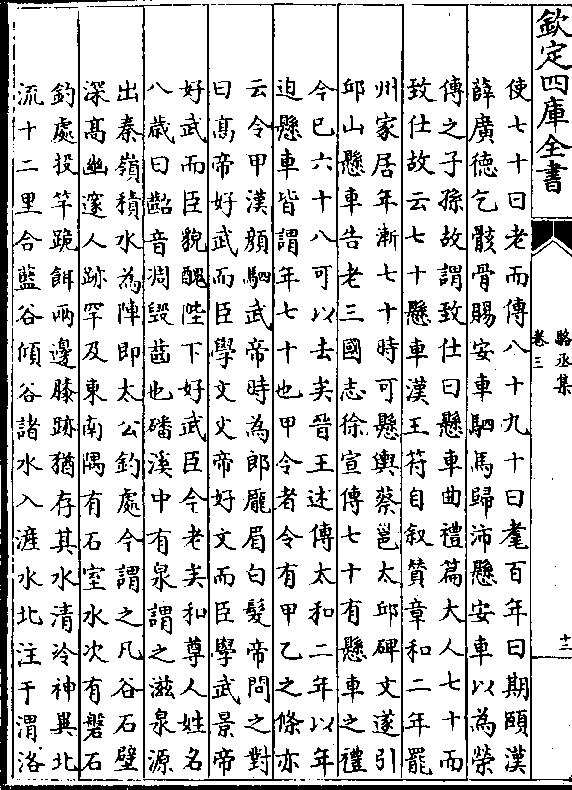 欽定四庫全書
駱丞集
卷三
十二
使七十曰老而傳八十九十曰耄百年曰期頤漢
薛廣德乞骸骨賜安車駟馬歸沛懸安車以為榮
傳之子孫故謂致仕曰懸車曲禮篇大人七十而
致仕故云七十懸車漢王符自叙贊章和二年罷
州家居年漸七十時可懸輿蔡邕太邱碑文遂引
邱山懸車告老三國志徐宣傳七十有懸車之禮
今已六十八可以去矣晉王述傳太和二年以年
迫懸車皆謂年七十也甲令者令有甲乙之條亦
云令甲漢顔駟武帝時為郎龎眉白髮帝問之對
曰髙帝好武而臣學文文帝好文而臣學武景帝
好武而臣貌醜陛下好武臣今老矣和尊人姓名
八歲曰齠音凋毀齒也磻溪中有泉謂之滋泉源
出秦嶺積水為陣即太公釣處今謂之凡谷石壁
深髙幽邃人跡罕及東南隅有石室水次有磐石
釣處投竿跪餌兩邊膝跡猶存其水清泠神異北
流十二里合藍谷傾谷諸水入滻水北注于渭洛